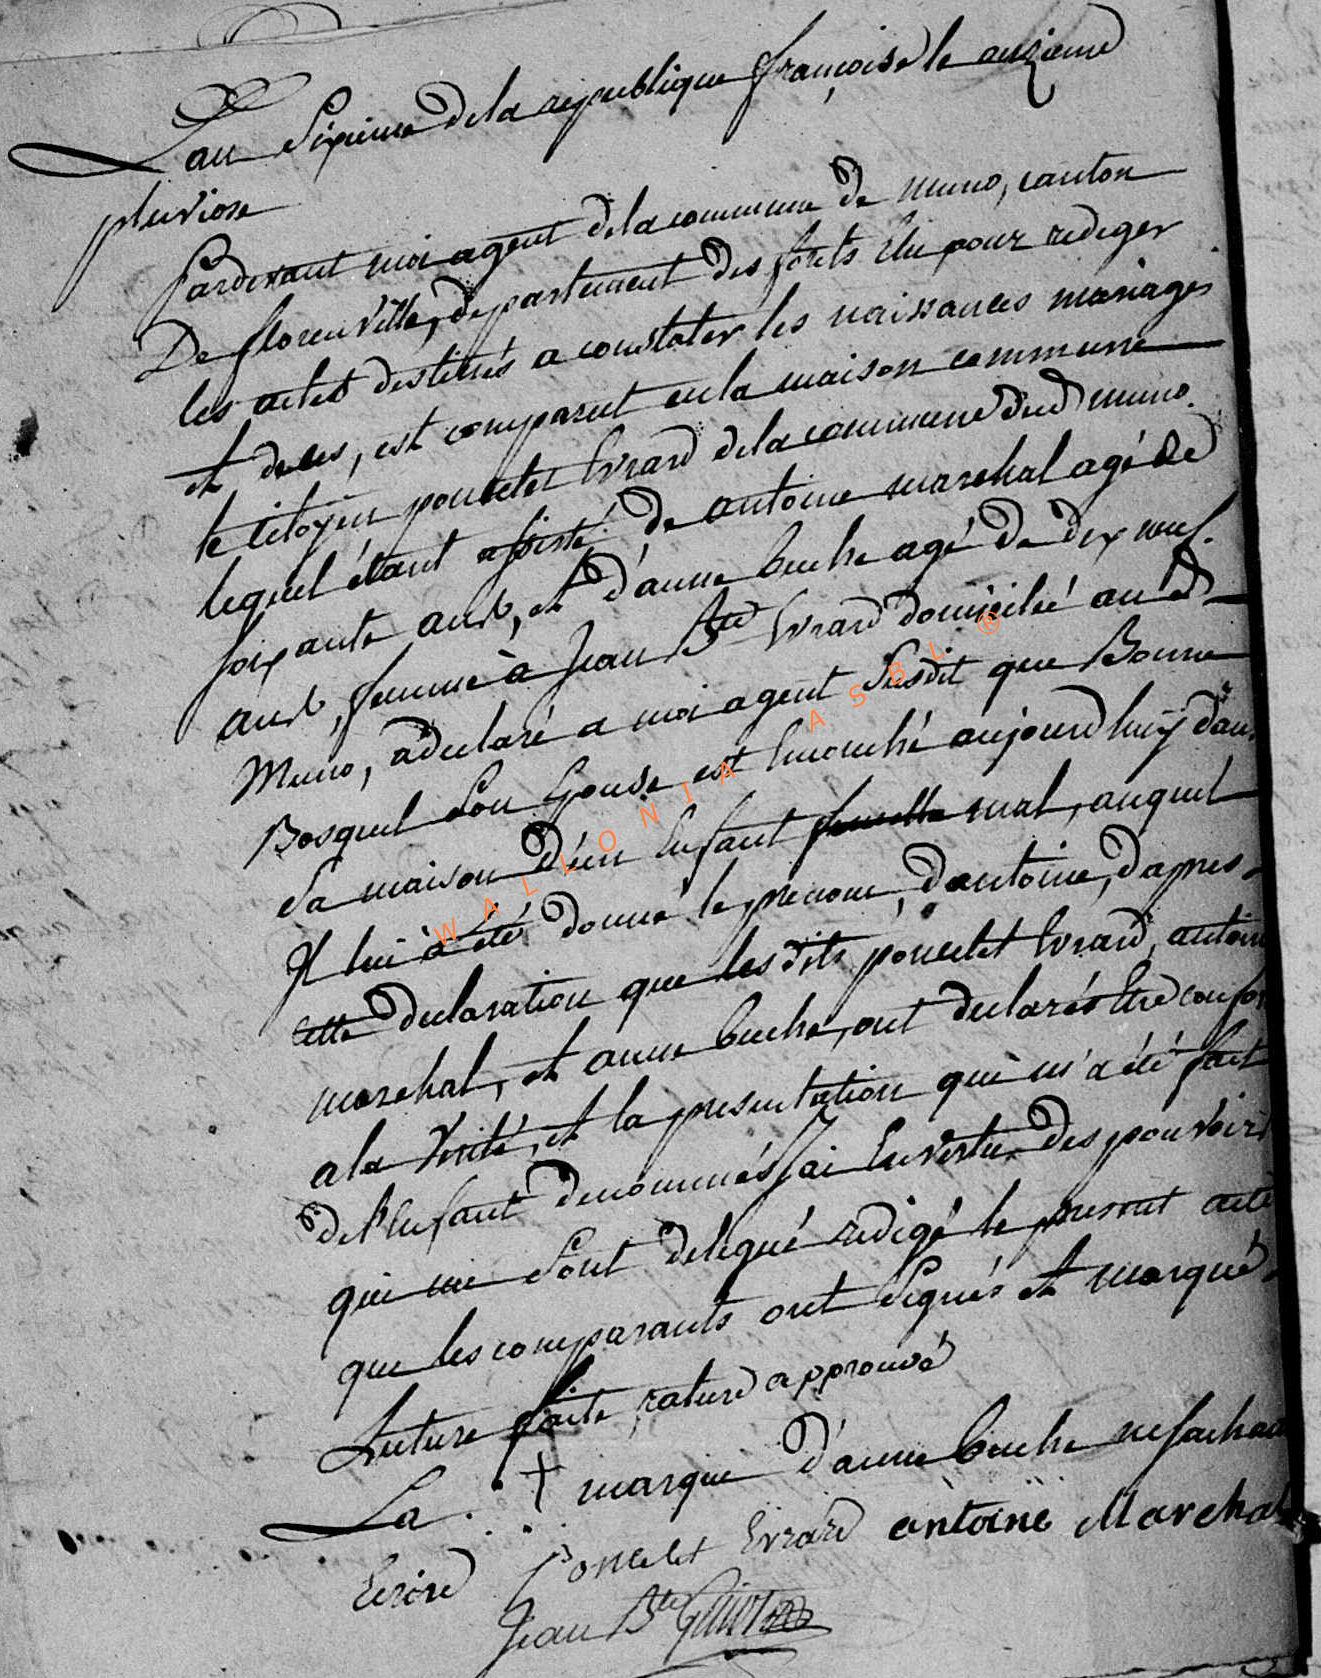 L'an Sixieme de la republique françoise le onzieme
pluviose
Pardevant moi agent de la commune de muno, canton
De florenville, departement des forêts Elu pour rediger
les actes destinés a constater les naissances mariages
et deces, est comparut en la maison commune
le citoyen poncelet Evrard de la commune dud muno.
lequel étant assisté de antoine marchal agé de
soixante ans, et d'anne buche agé de dix neuf.
ans, femme à Jean Bte Evrard domicilié aud
Muno, a declaré a moi agent Susdit que Bonne
Bosquel Son Epouse est Accouché aujourd'huÿ dans
Sa maison d'un Enfant femelle mal, auquel
Il lui a été donné le prenom, d'antoine, d'apres
cette declaration que lesdits poncelet Evrard, antoine
marchal, et anne buche, ont declarés Etre confor
a la Verité, et la presentation qui m'a été fait
de l'Enfant denommés J'ai En vertu des pouvoirs
qui me Sont delegué redigé le present acte
que les comparants ont Signés et marqué
Lecture faite rature approuvé
La + marque d'anne buche ne sachant
Ecrire Poncelet Evrard antoine Marchal
Jean Bte
WALLONIA ASBL ®